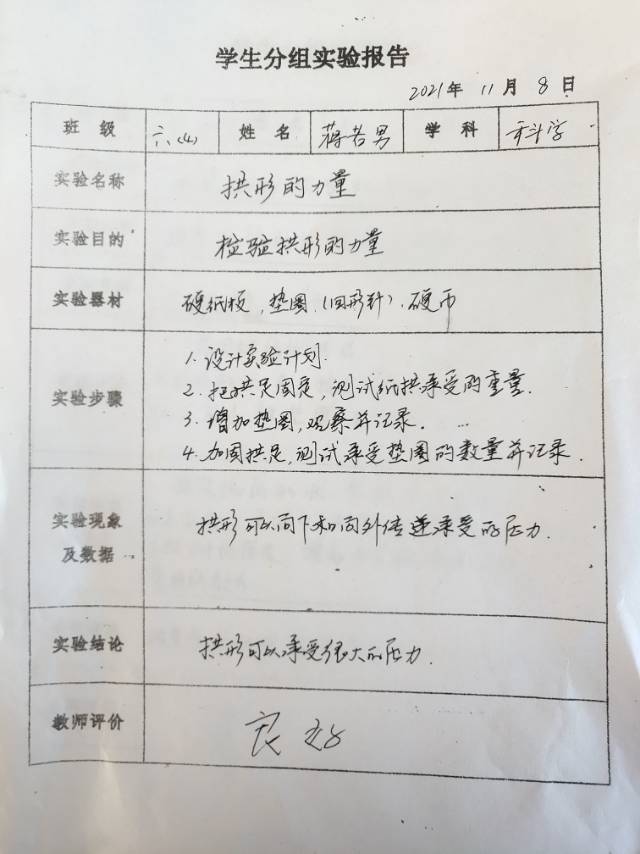 学生分组实验报告
2021年 11月 8日
班 级 六、(4) 姓 名 蒋若男 学 科 科学
实验名称 拱形的力量
实验目的 检验拱形的力量
实验器材 硬纸板、垫圈.(回形针).硬币
实验步骤
1.设计实验计划.
2.把拱足固定,测试纸拱承受的重量.
3.增加垫圈,观察并记录.
4.加固拱足,测试承受垫圈的数量并记录.
实验现象及数据 拱形可以向下和向外传递承受的压力.
实验结论 拱形可以承受很大的压力.
教师评价 良好